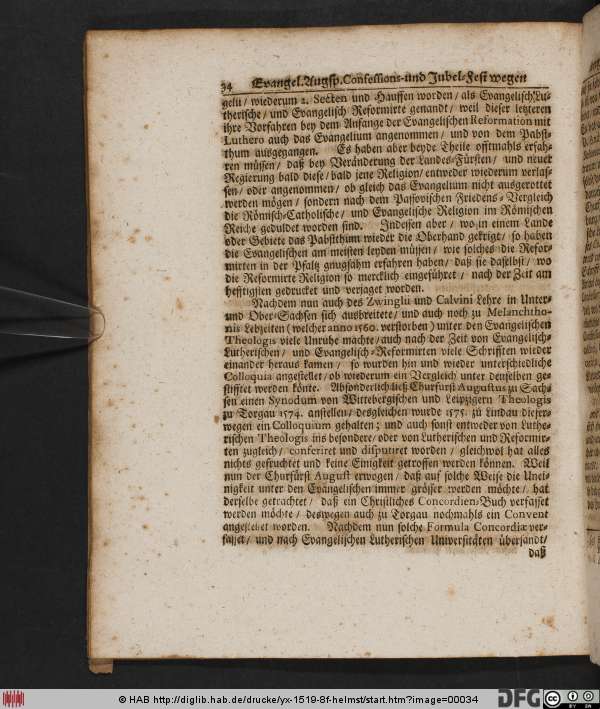 34 Evangel. Augsp. Confessions- und Jubel-Fest wegen
gelii / wiederum 2. Secten und Hauffen worden / als Evangelisch Lu-
therische / und Evangelisch Reformirte genandt / weil dieser letzteren
ihre Vorfahren bey dem Anfange der Evangelischen Reformation mit
Luthero auch das Evangelium angenommen / und von dem Pabst-
thum ausgegangen. Es haben aber beyde Theile offtmahls erfah-
ren müssen / daß bey Veränderung der Landes-Fürsten / und neuer
Regierung bald diese / bald jene Religion / entweder wiederum verlas-
sen / oder angenommen / ob gleich das Evangelium nicht ausgerottet
werden mögen / sondern nach dem Passovischen Friedens-Vergleich
die Römisch-Catholische / und Evangelische Religion im Römischen
Reiche geduldet worden sind. Indessen aber / wo in einem Lande
oder Gebiete das Pabstthum wieder die Oberhand gekrigt / so haben
die Evangelischen am meisten leyden müssen / wie solches die Refor-
mirten in der Pfaltz gnugsahm erfahren haben / daß sie daselbst / wo
die Reformirte Religion so mercklich eingeführet / nach der Zeit am
hefftigsten gedrucket und verjaget worden.
Nachdem nun auch des Zwinglii und Calvini Lehre in Unter-
und Ober-Sachsen sich ausbreitete / und auch noch zu Melanchtho-
nis Lebzeiten (welcher anno 1560. verstorben) unter den Evangelischen
Theologis viele Unruhe machte / auch nach der Zeit von Evangelisch-
Lutherischen / und Evangelisch-Reformirten viele Schrifften wieder
einander heraus kamen / so wurden hin und wieder unterschiedliche
Colloquia angestellet / ob wiederum ein Vergleich unter denselben ge-
stifftet werden könte. Absonderlich ließ Churfürst Augustus zu Sach-
sen einen Synodum von Wittebergischen und Leipzigern Theologis
zu Torgau 1574. anstellen / desgleichen wurde 1575. zu Lindau dieser-
wegen ein Colloquium gehalten ; und auch sonst entweder von Luthe-
rischen Theologis ins besondere / oder von Lutherischen und Reformir-
ten zugleich / conferiret und disputiret worden / gleichwol hat alles
nichts gefruchtet und keine Einigkeit getroffen werden können. Weil
nun der Churfürst August erwogen / daß auf solche Weise die Unei-
nigkeit unter den Evangelischen immer grösser werden möchte / hat
derselbe getrachtet / daß ein Christliches Concordien-Buch verfasset
werden möchte / deswegen auch zu Torgau nochmahls ein Convent
angestellet worden. Nachdem nun solche Formula Concordiæ ver-
fasset / und nach Evangelischen Lutherischen Universitäten übersandt /
daß
© HAB http://diglib.hab.de/drucke/yx-1519-8f-helmst/start.htm?image=00034
DFG
CC BY SA